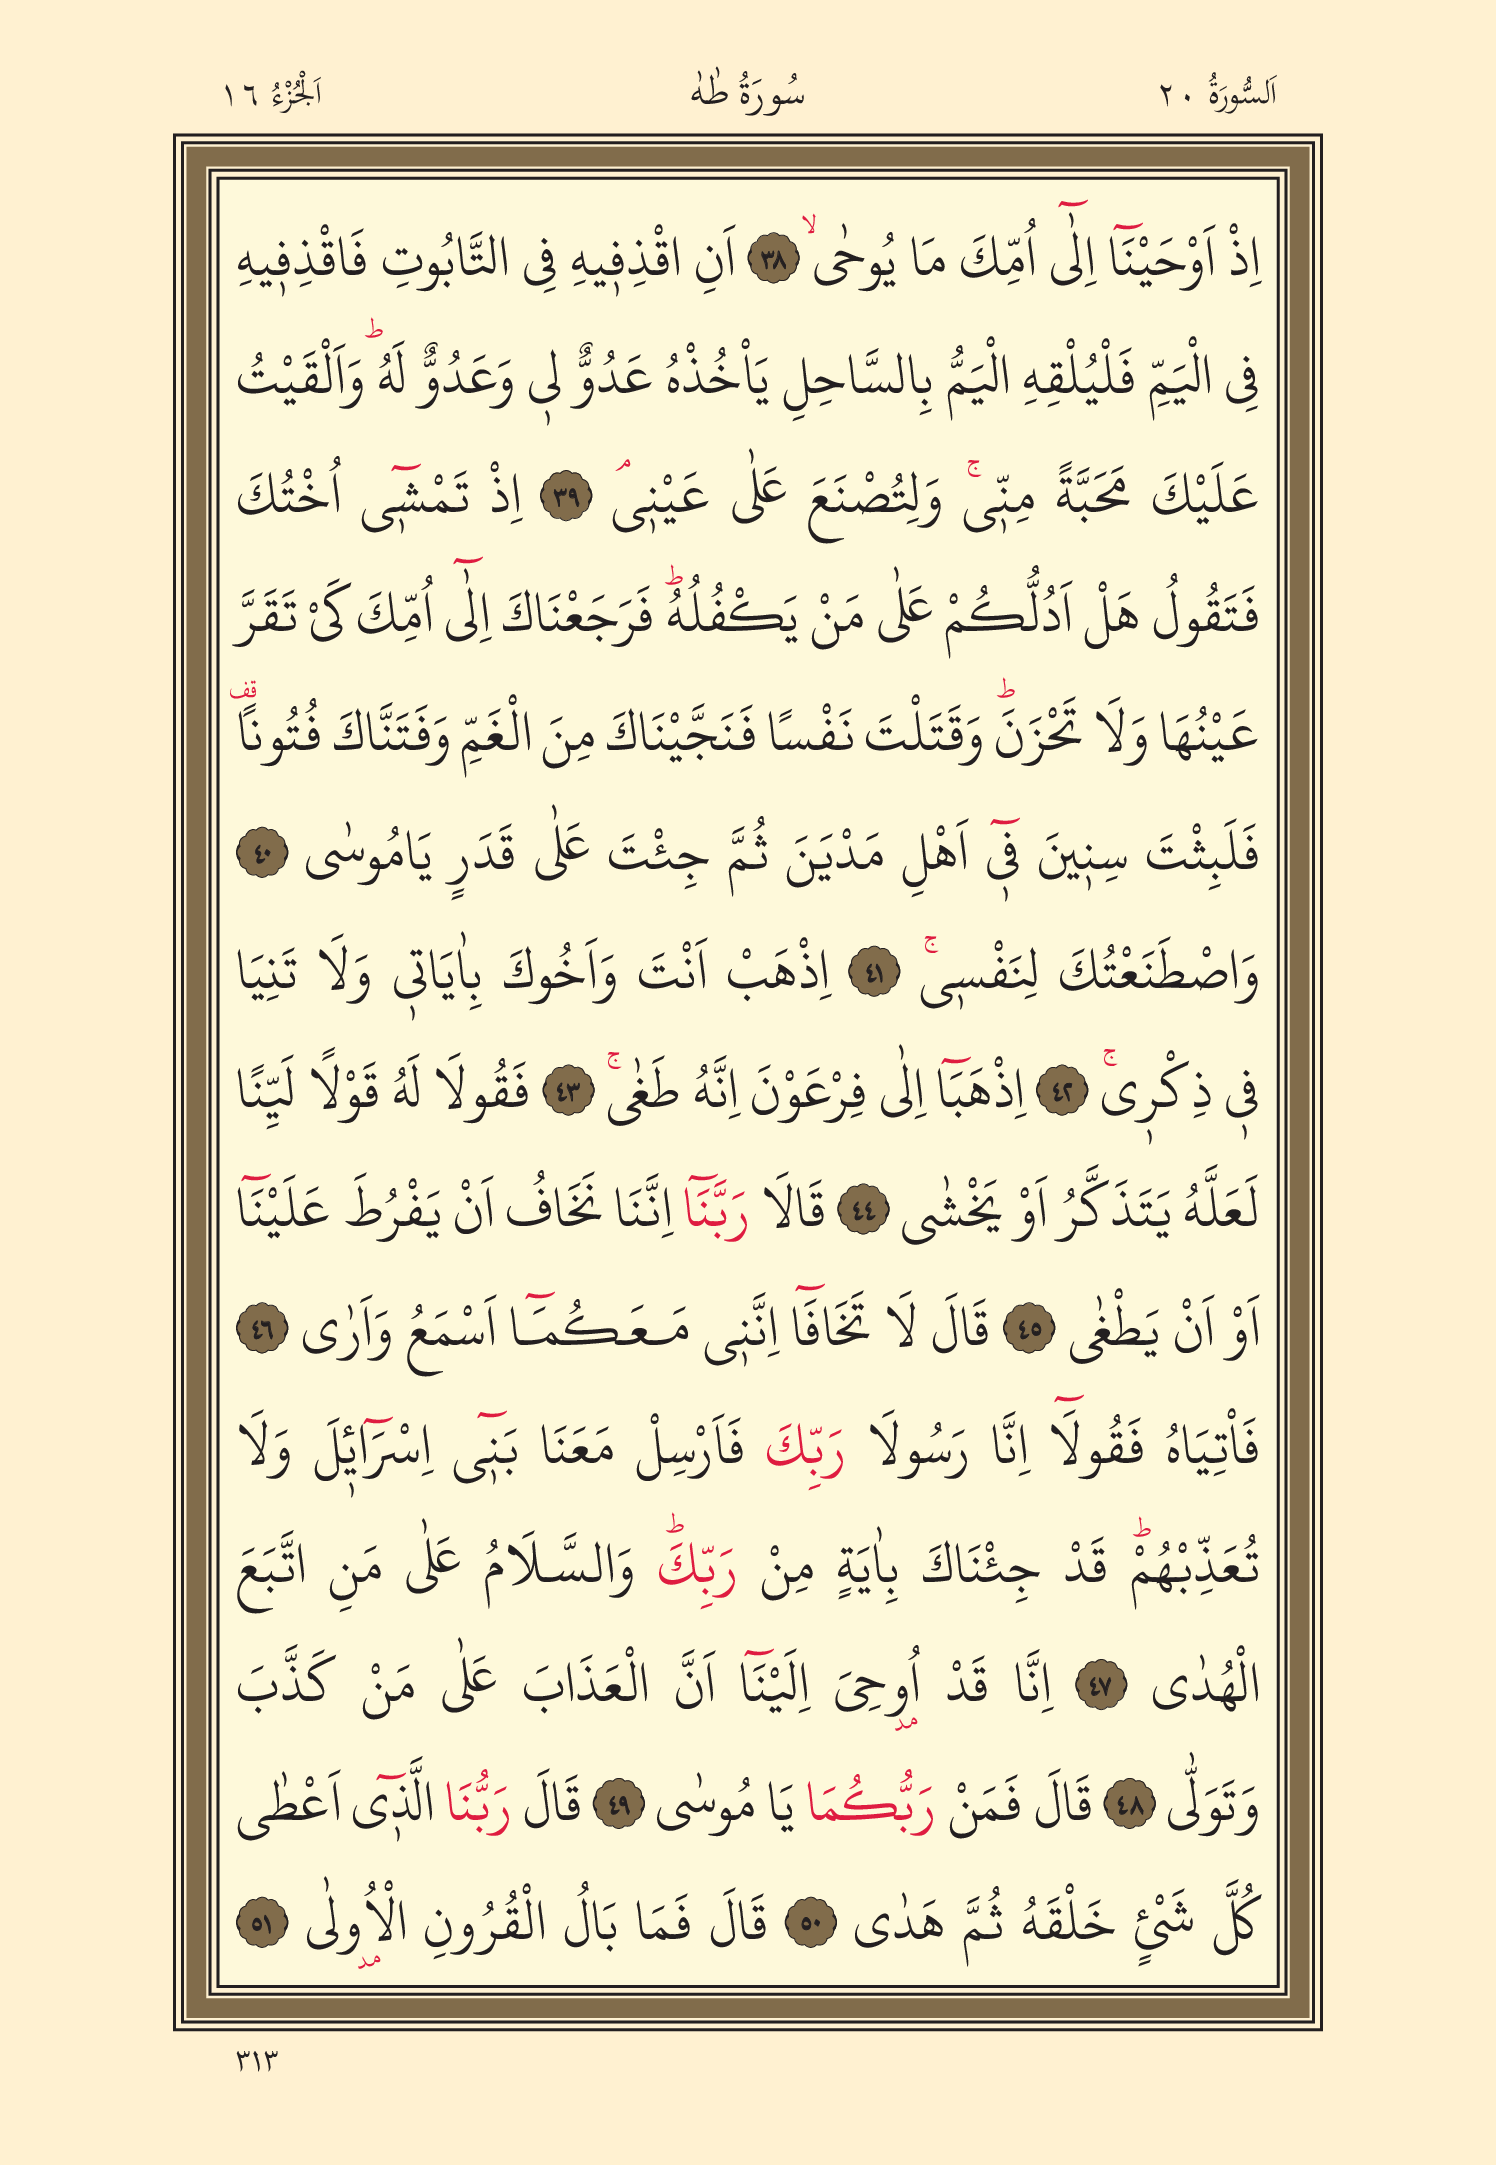 اَلسُّورَةُ ٢٠ سُورَةُ طٰهٰ اَلْجُزْءُ ١٦
اِذْ اَوْحَيْنَٓا اِلٰٓى اُمِّكَ مَا يُوحٰىۙ ٣٨ اَنِ اقْذِف۪يهِ فِى التَّابُوتِ فَاقْذِف۪يهِ
فِى الْيَمِّ فَلْيُلْقِهِ الْيَمُّ بِالسَّاحِلِ يَاْخُذْهُ عَدُوٌّ ل۪ى وَعَدُوٌّ لَهُۜ وَاَلْقَيْتُ
عَلَيْكَ مَحَبَّةً مِنّ۪ىۚ وَلِتُصْنَعَ عَلٰى عَيْن۪ىۢ ٣٩ اِذْ تَمْش۪ٓى اُخْتُكَ
فَتَقُولُ هَلْ اَدُلُّكُمْ عَلٰى مَنْ يَكْفُلُهُۜ فَرَجَعْنَاكَ اِلٰٓى اُمِّكَ كَىْ تَقَرَّ
عَيْنُهَا وَلَا تَحْزَنَۜ وَقَتَلْتَ نَفْسًا فَنَجَّيْنَاكَ مِنَ الْغَمِّ وَفَتَنَّاكَ فُتُونًا۠ قف
فَلَبِثْتَ سِن۪ينَ ف۪ٓى اَهْلِ مَدْيَنَ ثُمَّ جِئْتَ عَلٰى قَدَرٍ يَامُوسٰى ٤٠
وَاصْطَنَعْتُكَ لِنَفْس۪ىۚ ٤١ اِذْهَبْ اَنْتَ وَاَخُوكَ بِاٰيَات۪ى وَلَا تَنِيَا
ف۪ى ذِكْر۪ىۚ ٤٢ اِذْهَبَٓا اِلٰى فِرْعَوْنَ اِنَّهُ طَغٰىۚ ٤٣ فَقُولَا لَهُ قَوْلًا لَيِّنًا
لَعَلَّهُ يَتَذَكَّرُ اَوْ يَخْشٰى ٤٤ قَالَا رَبَّنَٓا اِنَّنَا نَخَافُ اَنْ يَفْرُطَ عَلَيْنَٓا
اَوْ اَنْ يَطْغٰى ٤٥ قَالَ لَا تَخَافَٓا اِنَّن۪ى مَعَكُمَٓا اَسْمَعُ وَاَرٰى ٤٦
فَاْتِيَاهُ فَقُولَٓا اِنَّا رَسُولَا رَبِّكَ فَاَرْسِلْ مَعَنَا بَن۪ٓى اِسْرَٓائ۪لَ وَلَا
تُعَذِّبْهُمْۜ قَدْ جِئْنَاكَ بِاٰيَةٍ مِنْ رَبِّكَۜ وَالسَّلَامُ عَلٰى مَنِ اتَّبَعَ
الْهُدٰى ٤٧ اِنَّا قَدْ اُوحِىَ اِلَيْنَٓا اَنَّ الْعَذَابَ عَلٰى مَنْ كَذَّبَ
مد
وَتَوَلّٰى ٤٨ قَالَ فَمَنْ رَبُّكُمَا يَا مُوسٰى ٤٩ قَالَ رَبُّنَا الَّذ۪ٓى اَعْطٰى
كُلَّ شَىْءٍ خَلْقَهُ ثُمَّ هَدٰى ٥٠ قَالَ فَمَا بَالُ الْقُرُونِ الْاُولٰى ٥١
مد
٣١٣